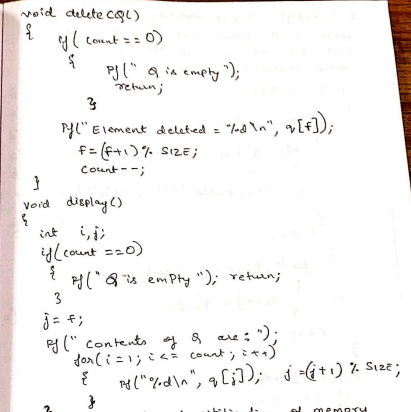 void deleteCQ()
{
if( count==0)
{
Pf(" Q is empty");
return;
}
Pf("Element deleted = %d\n", q[f]);
f=(f+1)% SIZE;
count--;
}
void display()
{
int i,j;
if(count ==0)
{ Pf(" Q is emPty"); return;
}
j= f;
Pf(" contents of Q are: ");
for(i=1; i<= count; i++)
{ Pf("%d\n", q[j]); j=(j+1) % SIZE;
}
} of memory